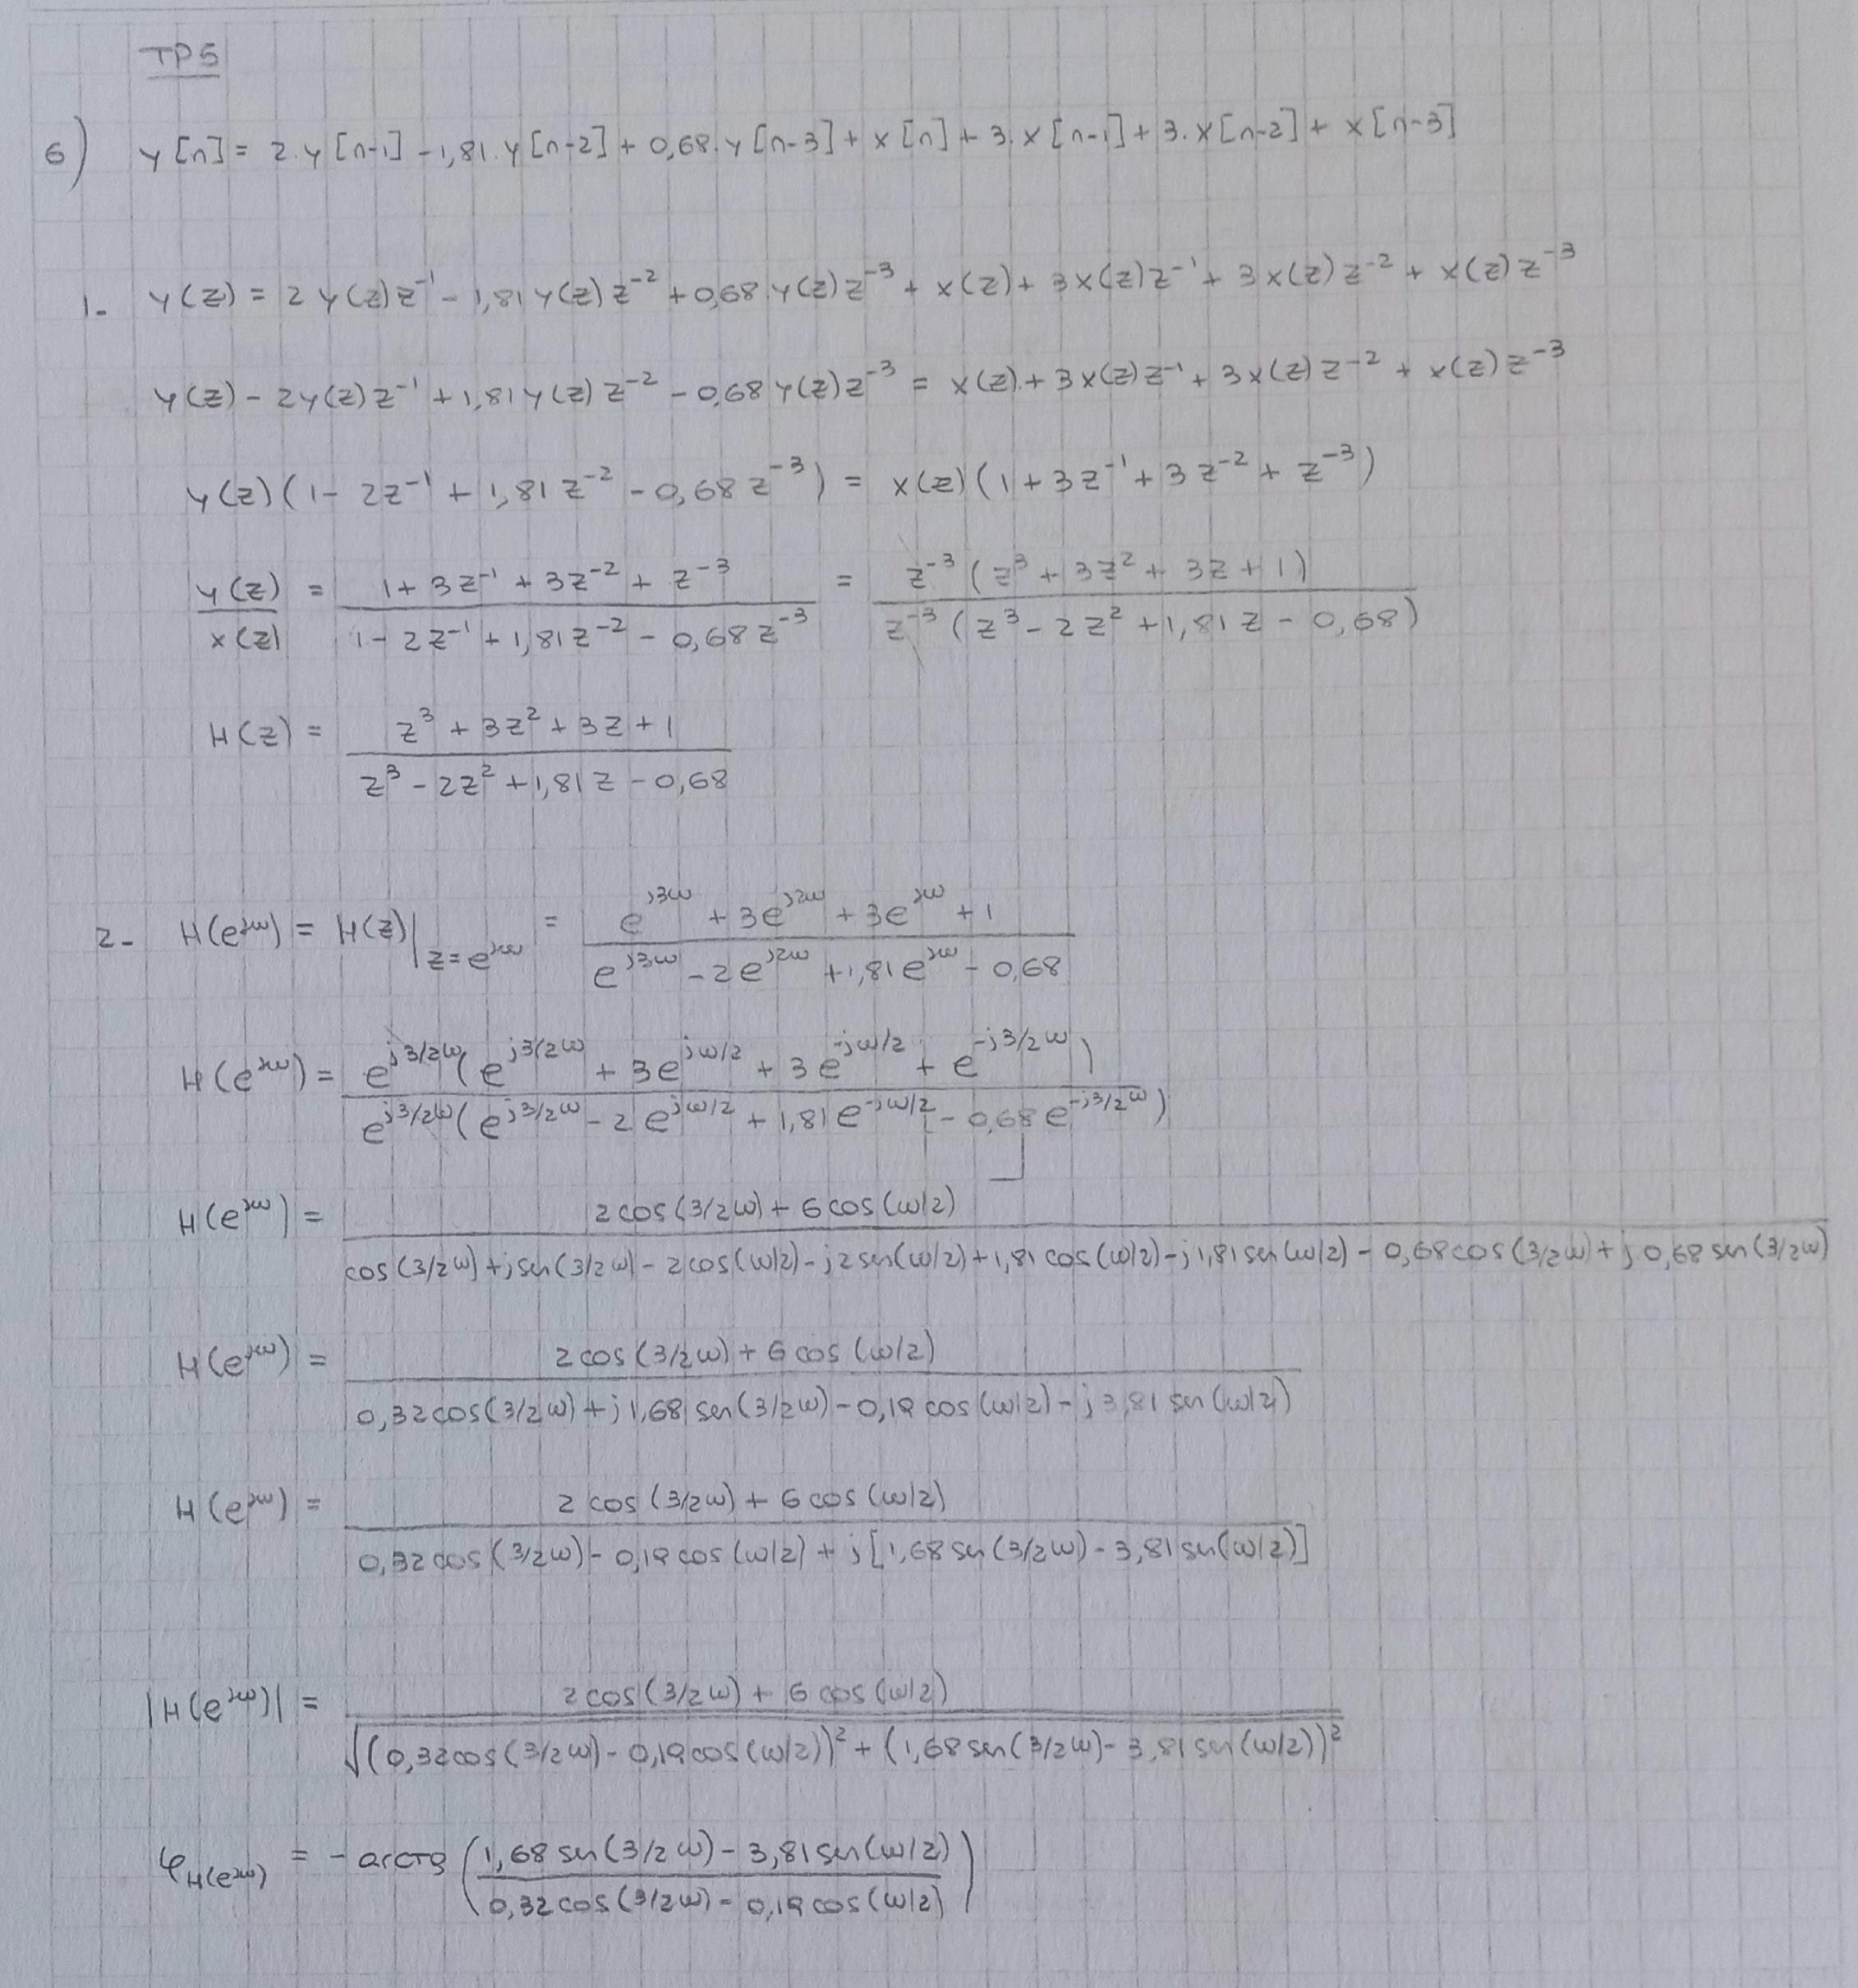 TP5
6) y[n] = 2.y[n-1] - 1,81.y[n-2] + 0,68.y[n-3] + x[n] + 3.x[n-1] + 3.x[n-2] + x[n-3]
1- Y(z) = 2Y(z)z⁻¹ - 1,81Y(z)z⁻² + 0,68.Y(z)z⁻³ + X(z) + 3X(z)z⁻¹ + 3X(z)z⁻² + X(z)z⁻³
Y(z) - 2Y(z)z⁻¹ + 1,81Y(z)z⁻² - 0,68Y(z)z⁻³ = X(z) + 3X(z)z⁻¹ + 3X(z)z⁻² + X(z)z⁻³
Y(z)(1 - 2z⁻¹ + 1,81z⁻² - 0,68z⁻³) = X(z)(1 + 3z⁻¹ + 3z⁻² + z⁻³)
Y(z)/X(z) = (1 + 3z⁻¹ + 3z⁻² + z⁻³)/(1 - 2z⁻¹ + 1,81z⁻² - 0,68z⁻³) = z⁻³(z³ + 3z² + 3z + 1)/z⁻³(z³ - 2z² + 1,81z - 0,68)
H(z) = (z³ + 3z² + 3z + 1)/(z³ - 2z² + 1,81z - 0,68)
2- H(e^jω) = H(z)|z=e^jω = (e^j3ω + 3e^j2ω + 3e^jω + 1)/(e^j3ω - 2e^j2ω + 1,81e^jω - 0,68)
H(e^jω) = e^j3/2ω(e^j3/2ω + 3e^jω/2 + 3e^-jω/2 + e^-j3/2ω)/e^j3/2ω(e^j3/2ω - 2e^jω/2 + 1,81e^-jω/2 - 0,68e^-j3/2ω)
H(e^jω) = (2cos(3/2ω) + 6cos(ω/2))/(cos(3/2ω) + jsen(3/2ω) - 2cos(ω/2) - j2sen(ω/2) + 1,81cos(ω/2) - j1,81sen(ω/2) - 0,68cos(3/2ω) + j0,68sen(3/2ω))
H(e^jω) = (2cos(3/2ω) + 6cos(ω/2))/(0,32cos(3/2ω) + j1,68sen(3/2ω) - 0,19cos(ω/2) - j3,81sen(ω/2))
H(e^jω) = (2cos(3/2ω) + 6cos(ω/2))/(0,32cos(3/2ω) - 0,19cos(ω/2) + j[1,68sen(3/2ω) - 3,81sen(ω/2)])
|H(e^jω)| = (2cos(3/2ω) + 6cos(ω/2))/√((0,32cos(3/2ω) - 0,19cos(ω/2))² + (1,68sen(3/2ω) - 3,81sen(ω/2))²)
φH(e^jω) = -arctg((1,68sen(3/2ω) - 3,81sen(ω/2))/(0,32cos(3/2ω) - 0,19cos(ω/2)))